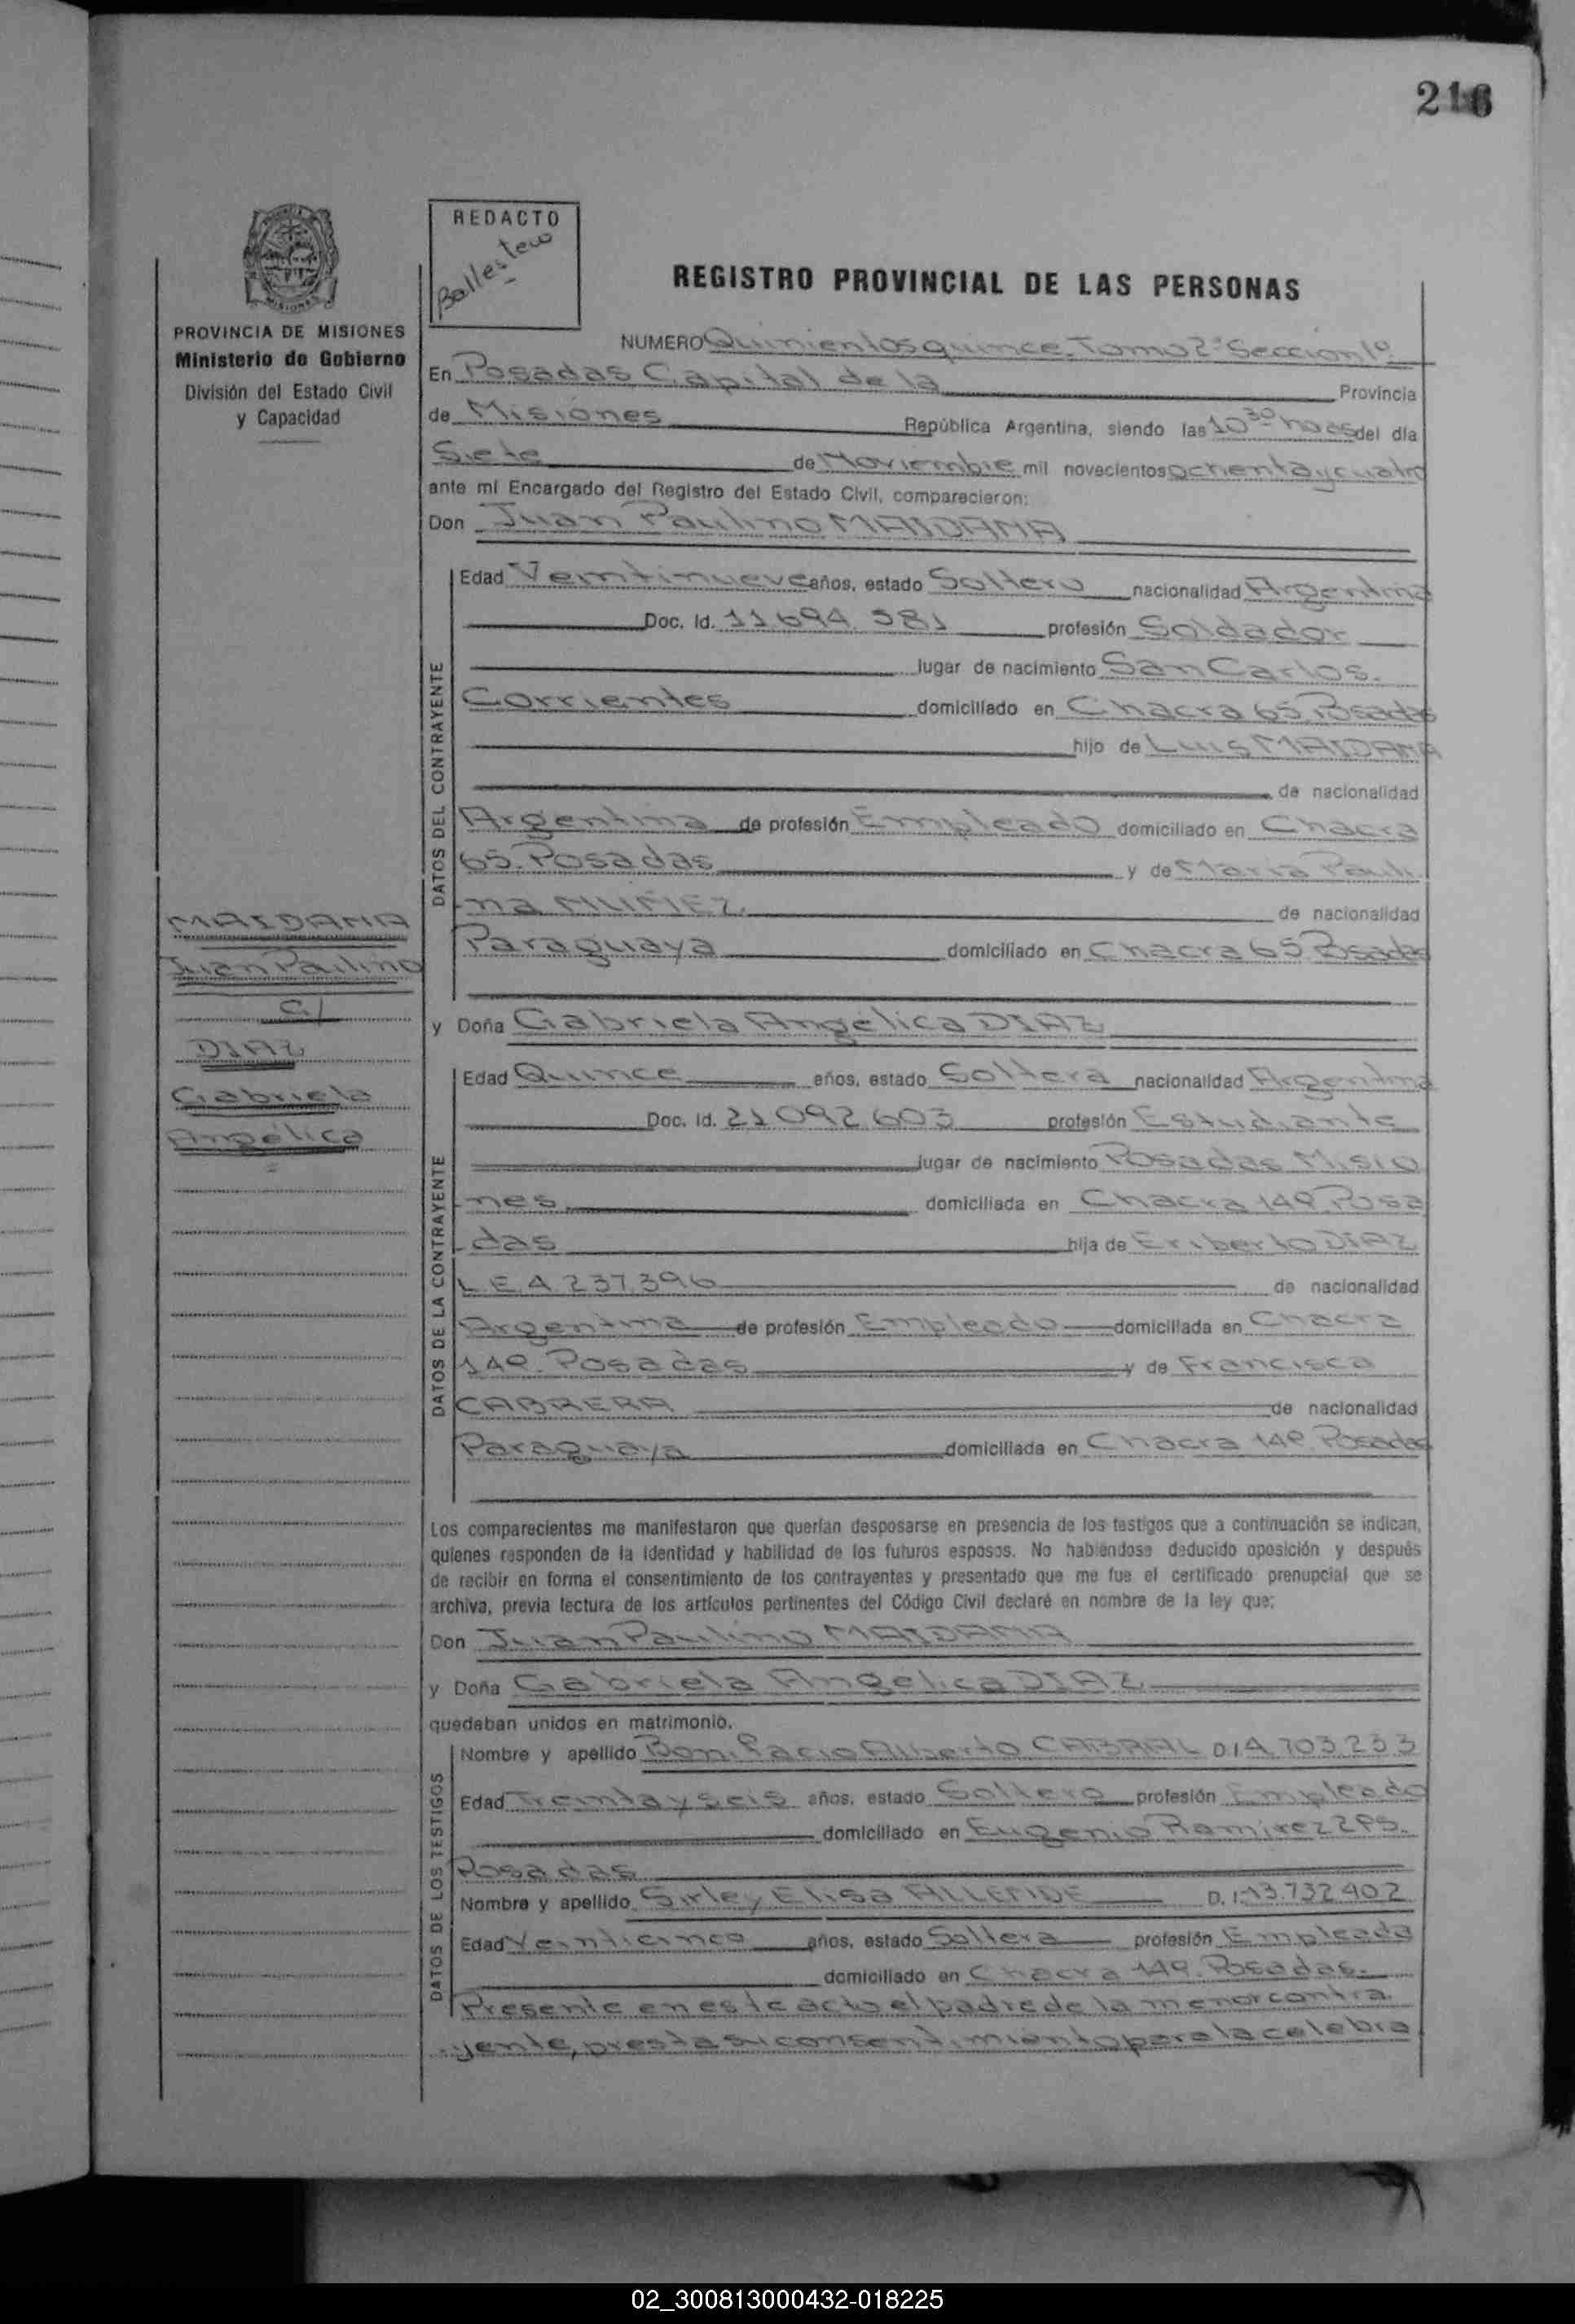 216
REDACTO
Ballestero
REGISTRO PROVINCIAL DE LAS PERSONAS
PROVINCIA DE MISIONES
Ministerio de Gobierno
División del Estado Civil
y Capacidad
NUMERO Quinientos quince. Tomo 2º Seccion 1º
En Posadas Capital de la Provincia
de Misiones República Argentina, siendo las 10 30 horas del día
Siete de Noviembre mil novecientos ochenta y cuatro
ante mi Encargado del Registro del Estado Civil, comparecieron:
Don Juan Paulino MAIDANA
DATOS DEL CONTRAYENTE
Edad Veintinueve años, estado Soltero nacionalidad Argentina
Doc. Id. 11 694 381 profesión Soldador
lugar de nacimiento San Carlos.
Corrientes domiciliado en Chacra 65 Posadas
hijo de Luis MAIDANA
de nacionalidad
Argentina de profesión Empleado domiciliado en Chacra
65. Posadas y de Maria Pauli
na MUÑEZ. de nacionalidad
Paraguaya domiciliado en Chacra 65 Posadas
MAIDANA
Juan Paulino
C/
DIAZ
Gabriela
Angélica
y Doña Gabriela Angélica DIAZ
DATOS DE LA CONTRAYENTE
Edad Quince años, estado Soltera nacionalidad Argentina
Doc. Id. 21 092 603 profesión Estudiante
lugar de nacimiento Posadas Misio
nes domiciliada en Chacra 149 Posa
das hija de Eriberto DIAZ
L.E.A 237.396 de nacionalidad
Argentina de profesión Empleado domiciliada en Chacra
149. Posadas y de Francisca
CABRERA de nacionalidad
Paraguaya domiciliada en Chacra 149. Posadas
Los comparecientes me manifestaron que querían desposarse en presencia de los testigos que a continuación se indican,
quienes responden de la identidad y habilidad de los futuros esposos. No habiéndose deducido oposición y después
de recibir en forma el consentimiento de los contrayentes y presentado que me fue el certificado prenupcial que se
archiva, previa lectura de los artículos pertinentes del Código Civil declaré en nombre de la ley que:
Don Juan Paulino MAIDANA
y Doña Gabriela Angelica DIAZ
quedaban unidos en matrimonio.
DATOS DE LOS TESTIGOS
Nombre y apellido Bonifacio Alberto CABRAL D.I 4.703.233
Edad Treinta y seis años, estado Soltero profesión Empleado
domiciliado en Eugenio Ramirez 295.
Posadas
Nombre y apellido Sirley Elisa ALLENDE D.I. 13.732.402
Edad Veinticinco años, estado Soltera profesión Empleada
domiciliado en Chacra 149. Posadas.
Presente en este acto el padre de la menor contra
yente, presta su consentimiento para la celebra
02_300813000432-018225